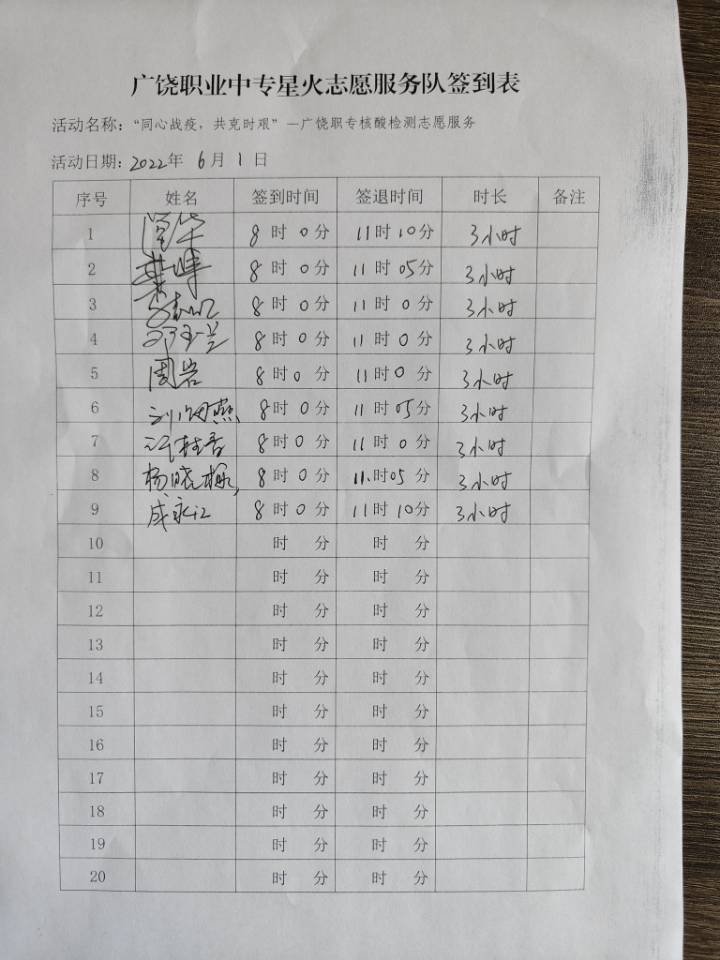 广饶职业中专星火志愿服务队签到表
活动名称：“同心战疫，共克时艰”—广饶职专核酸检测志愿服务
活动日期：2022年 6月 1日
序号 姓名 签到时间 签退时间 时长 备注
1 8时0分 11时10分 3小时
2 8时0分 11时05分 3小时
3 8时0分 11时0分 3小时
4 8时0分 11时0分 3小时
5 周岩 8时0分 11时0分 3小时
6 刘海燕 8时0分 11时05分 3小时
7 8时0分 11时0分 3小时
8 杨晓 8时0分 11.时05分 3小时
9 成永江 8时0分 11时10分 3小时
10 时 分 时 分
11 时 分 时 分
12 时 分 时 分
13 时 分 时 分
14 时 分 时 分
15 时 分 时 分
16 时 分 时 分
17 时 分 时 分
18 时 分 时 分
19 时 分 时 分
20 时 分 时 分